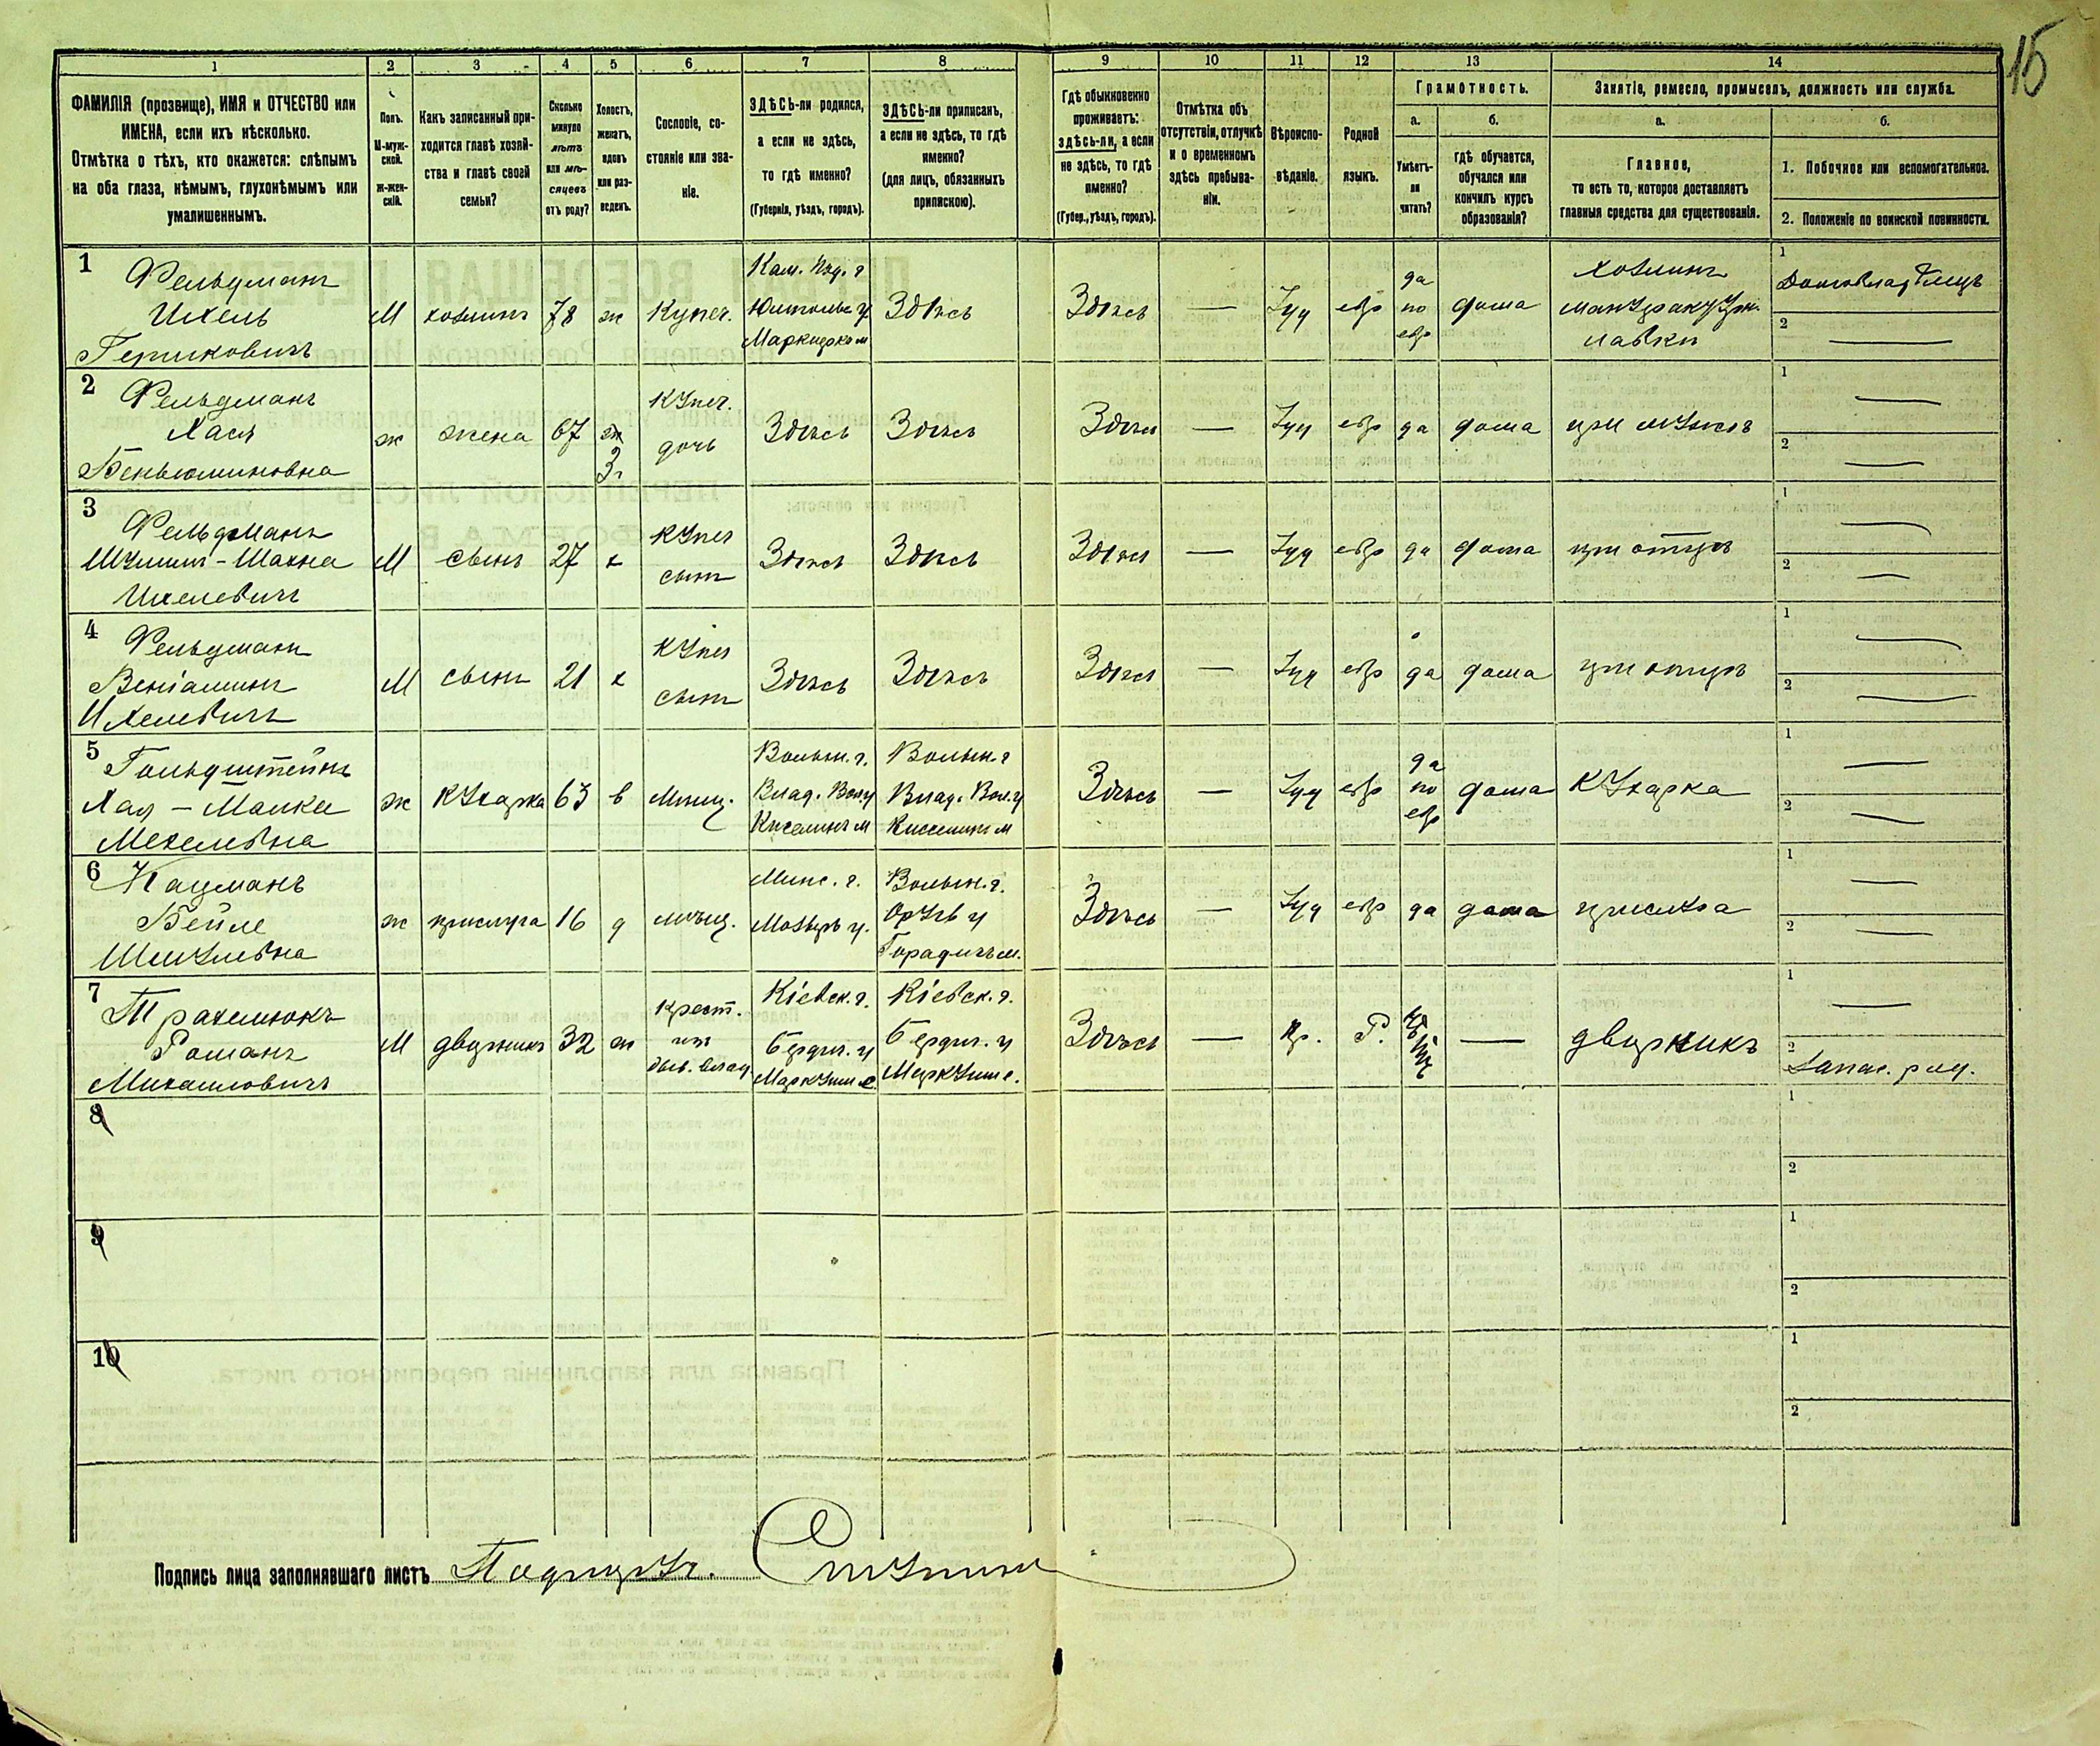 15
1 2 3 4 5 6 7 8 9 10 11 12 13 14
ФАМИЛІЯ (прозвище), ИМЯ и ОТЧЕСТВО или
ИМЕНА, если ихъ нѣсколько.
Отмѣтка о тѣхъ, кто окажется: слѣпымъ
на оба глаза, нѣмымъ, глухонѣмымъ или
умалишеннымъ.
Полъ.
М-муж-
ской.
ж-жен-
скій.
Какъ записанный при-
ходится главѣ хозяй-
ства и главѣ своей
семьи?
Сколько
минуло
лѣтъ
или мѣ-
сяцевъ
отъ роду?
Холостъ,
женатъ,
вдовъ
или раз-
веденъ.
Сословіе, со-
стояніе или зва-
ніе.
ЗДѢСЬ-ли родился,
а если не здѣсь,
то гдѣ именно?
(Губернія, уѣздъ, городъ).
ЗДѢСЬ-ли приписанъ,
а если не здѣсь, то гдѣ
именно?
(для лицъ, обязанныхъ
припискою).
Гдѣ обыкновенно
проживаетъ:
здѣсь-ли, а если
не здѣсь, то гдѣ
именно?
(Губер., уѣздъ, городъ).
Отмѣтка объ
отсутствіи, отлучкѣ
и о временномъ
здѣсь пребыва-
ніи.
Вѣроиспо-
вѣданіе.
Родной
языкъ.
Грамотность.
а.
Умѣетъ-
ли
читать?
б.
гдѣ обучается,
обучался или
кончилъ курсъ
образованія?
Занятіе, ремесло, промыселъ, должность или служба.
а.
Главное,
то есть то, которое доставляетъ
главныя средства для существованія.
б.
1. Побочное или вспомогательное.
2. Положеніе по воинской повинности.
1
Фельдманъ
Ихель
М
хозяинъ
78
ж
Купеч.
Здѣсь
Здѣсь
—
Іуд
евр
да
по
евр
дома
хозяинъ
лавки
1
Домовладѣлецъ
2
—
2
Фельдманъ
Хася
Беньяминовна
ж
жена
67
ж
3
Купеч.
дочь
Здѣсь
Здѣсь
Здѣсь
—
Іуд
евр
да
дома
при мужѣ
1
—
2
—
3
Фельдманъ
Ихелевичъ
М
сынъ
27
х
Купеч
сынъ
Здѣсь
Здѣсь
Здѣсь
—
Іуд
евр
да
дома
при отцѣ
1
—
2
—
4
Фельдманъ
Веніаминъ
Ихелевичъ
М
сынъ
21
х
Купеч
сынъ
Здѣсь
Здѣсь
Здѣсь
—
Іуд
евр
да
дома
при отцѣ
1
—
2
—
5
Гольдштейнъ
Хая – Малка
Мехелевна
ж
кухарка
63
в
Мѣщ.
Волын. г.
Влад. Вол. у
Киселинъ м
Волын. г
Влад. Вол. у
Киселинъ м
Здѣсь
—
Іуд
евр
да
по
евр
дома
Кухарка
1
—
2
—
6
Кацманъ
Бейле
Шмулевна
ж
прислуга
16
д
мѣщ.
Минс. г.
Мозырь у.
Волын. г.
Овруч у
Здѣсь
—
Іуд
евр
да
дома
прислуга
1
—
2
—
7
Романъ
Михаиловичъ
М
дворникъ
32
ж
Крест.
изъ
быв. влад
Кіевск. г.
Бердич. у
Кіевск. г.
Бердич. у
Здѣсь
—
Пр.
Р.
—
дворникъ
1
—
2
Запас. ряд.
8
1
2
9
1
2
10
1
2
Подпись лица заполнявшаго листъ